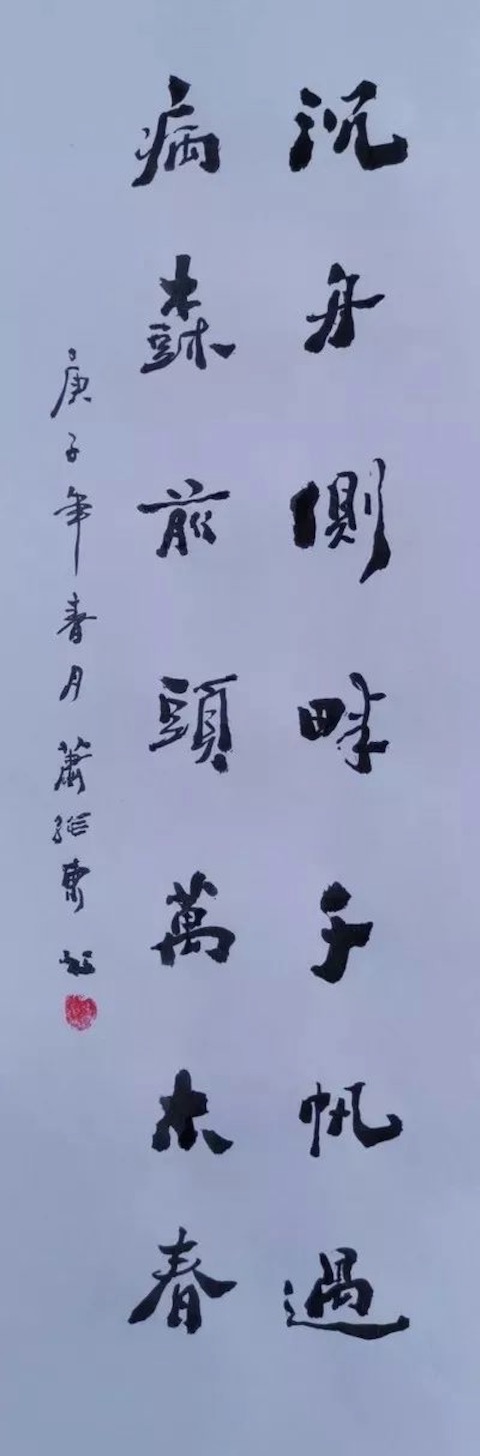 沉舟側畔千帆過
病樹前頭萬木春
庚子年春月蕭